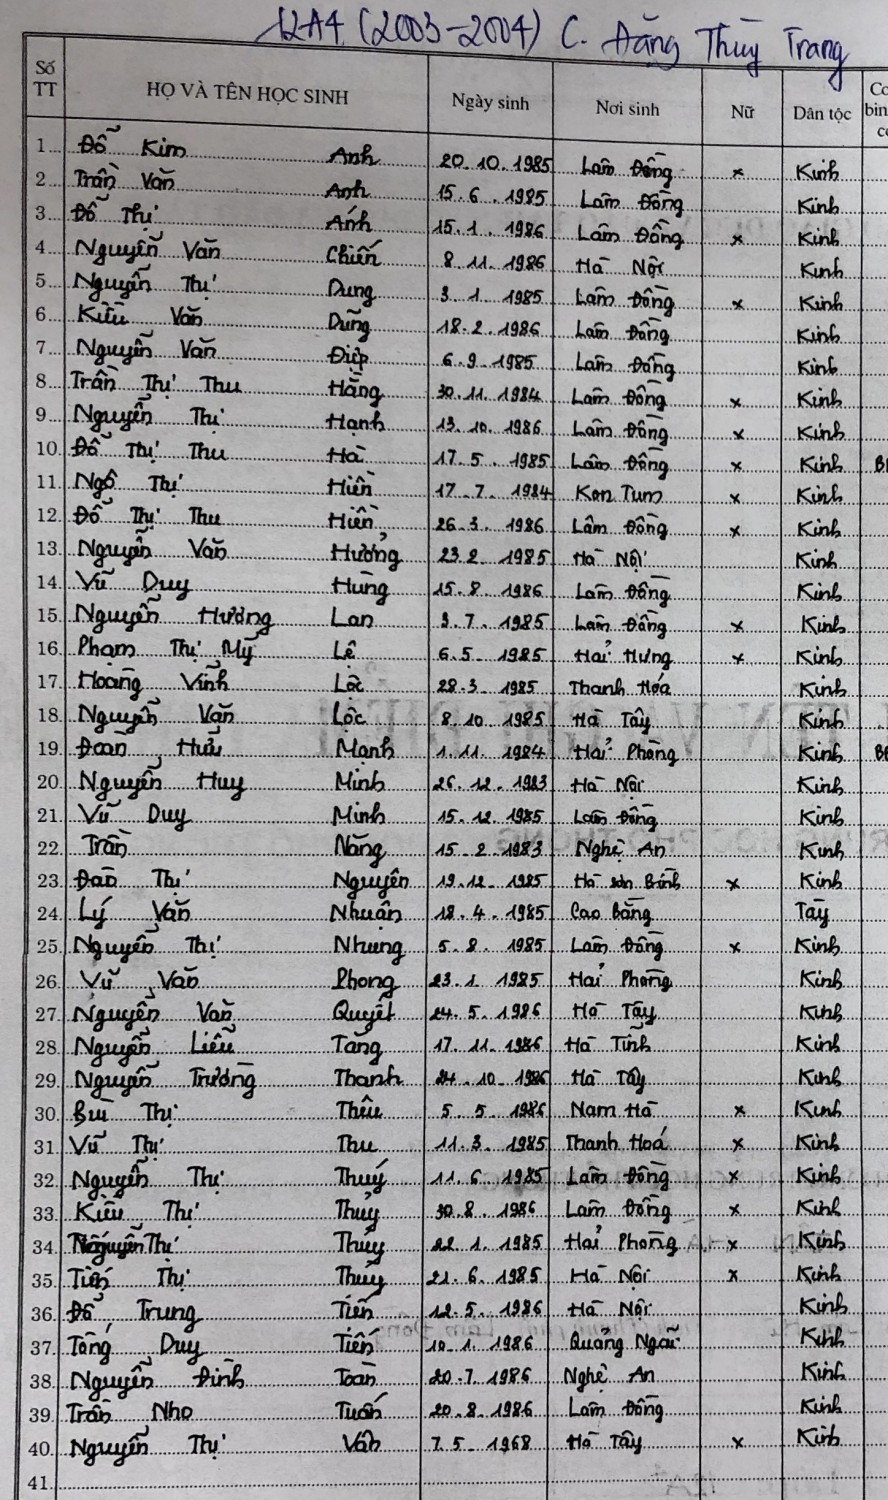 12A4 (2003-2004) C. Đặng Thùy Trang
Số TT HỌ VÀ TÊN HỌC SINH Ngày sinh Nơi sinh Nữ Dân tộc
1 Đỗ Kim Anh 20.10.1985 Lâm Đồng x Kinh
2 Trần Văn Anh 15.6.1985 Lâm Đồng Kinh
3 Đỗ Thị Ánh 15.1.1986 Lâm Đồng x Kinh
4 Nguyễn Văn Chiến 8.11.1986 Hà Nội Kinh
5 Nguyễn Thị Dung 3.1.1985 Lâm Đồng x Kinh
6 Kiều Văn Dũng 18.2.1986 Lâm Đồng Kinh
7 Nguyễn Văn Điệp 6.9.1985 Lâm Đồng Kinh
8 Trần Thị Thu Hằng 30.11.1984 Lâm Đồng x Kinh
9 Nguyễn Thị Hạnh 13.10.1986 Lâm Đồng x Kinh
10. Đỗ Thị Thu Hà 17.5.1985 Lâm Đồng x Kinh
11. Ngô Thị Hiền 17.7.1984 Kon Tum x Kinh
12. Đỗ Thị Thu Hiền 26.3.1986 Lâm Đồng x Kinh
13. Nguyễn Văn Hưởng 23.2.1985 Hà Nội Kinh
14. Vũ Duy Hùng 15.8.1986 Lâm Đồng Kinh
15. Nguyễn Hương Lan 9.7.1985 Lâm Đồng x Kinh
16. Phạm Thị Mỹ Lệ 6.5.1985 Hải Hưng x Kinh
17. Hoàng Vĩnh Lộc 28.3.1985 Thanh Hóa Kinh
18. Nguyễn Văn Lộc 8.10.1985 Hà Tây Kinh
19. Đoàn Hữu Mạnh 1.11.1984 Hải Phòng Kinh
20. Nguyễn Huy Minh 26.12.1983 Hà Nội Kinh
21. Vũ Duy Minh 15.12.1985 Lâm Đồng Kinh
22. Trần Năng 15.2.1983 Nghệ An Kinh
23. Đào Thị Nguyên 19.12.1985 Hà Sơn Bình x Kinh
24. Lý Văn Nhuận 18.4.1985 Cao Bằng Tày
25. Nguyễn Thị Nhung 5.8.1985 Lâm Đồng x Kinh
26. Vũ Văn Phong 23.1.1985 Hải Phòng Kinh
27. Nguyễn Văn Quyết 24.5.1986 Hà Tây Kinh
28. Nguyễn Liễu Tăng 17.11.1986 Hà Tĩnh Kinh
29. Nguyễn Trường Thanh 24.10.1986 Hà Tây Kinh
30. Bùi Thị Thêu 5.5.1986 Nam Hà x Kinh
31. Vũ Thị Thu 11.3.1985 Thanh Hoá x Kinh
32. Nguyễn Thị Thuý 11.6.1985 Lâm Đồng x Kinh
33. Kiều Thị Thủy 30.8.1986 Lâm Đồng x Kinh
34. Nguyễn Thị Thúy 22.1.1985 Hải Phòng x Kinh
35. Tiến Thị Thuý 21.6.1985 Hà Nội x Kinh
36. Đỗ Trung Tiến 12.5.1986 Hà Nội Kinh
37. Tống Duy Tiến 10.1.1986 Quảng Ngãi Kinh
38. Nguyễn Đình Toàn 20.7.1986 Nghệ An Kinh
39. Trần Nho Tuấn 20.8.1986 Lâm Đồng Kinh
40. Nguyễn Thị Vân 7.5.1968 Hà Tây x Kinh
41.